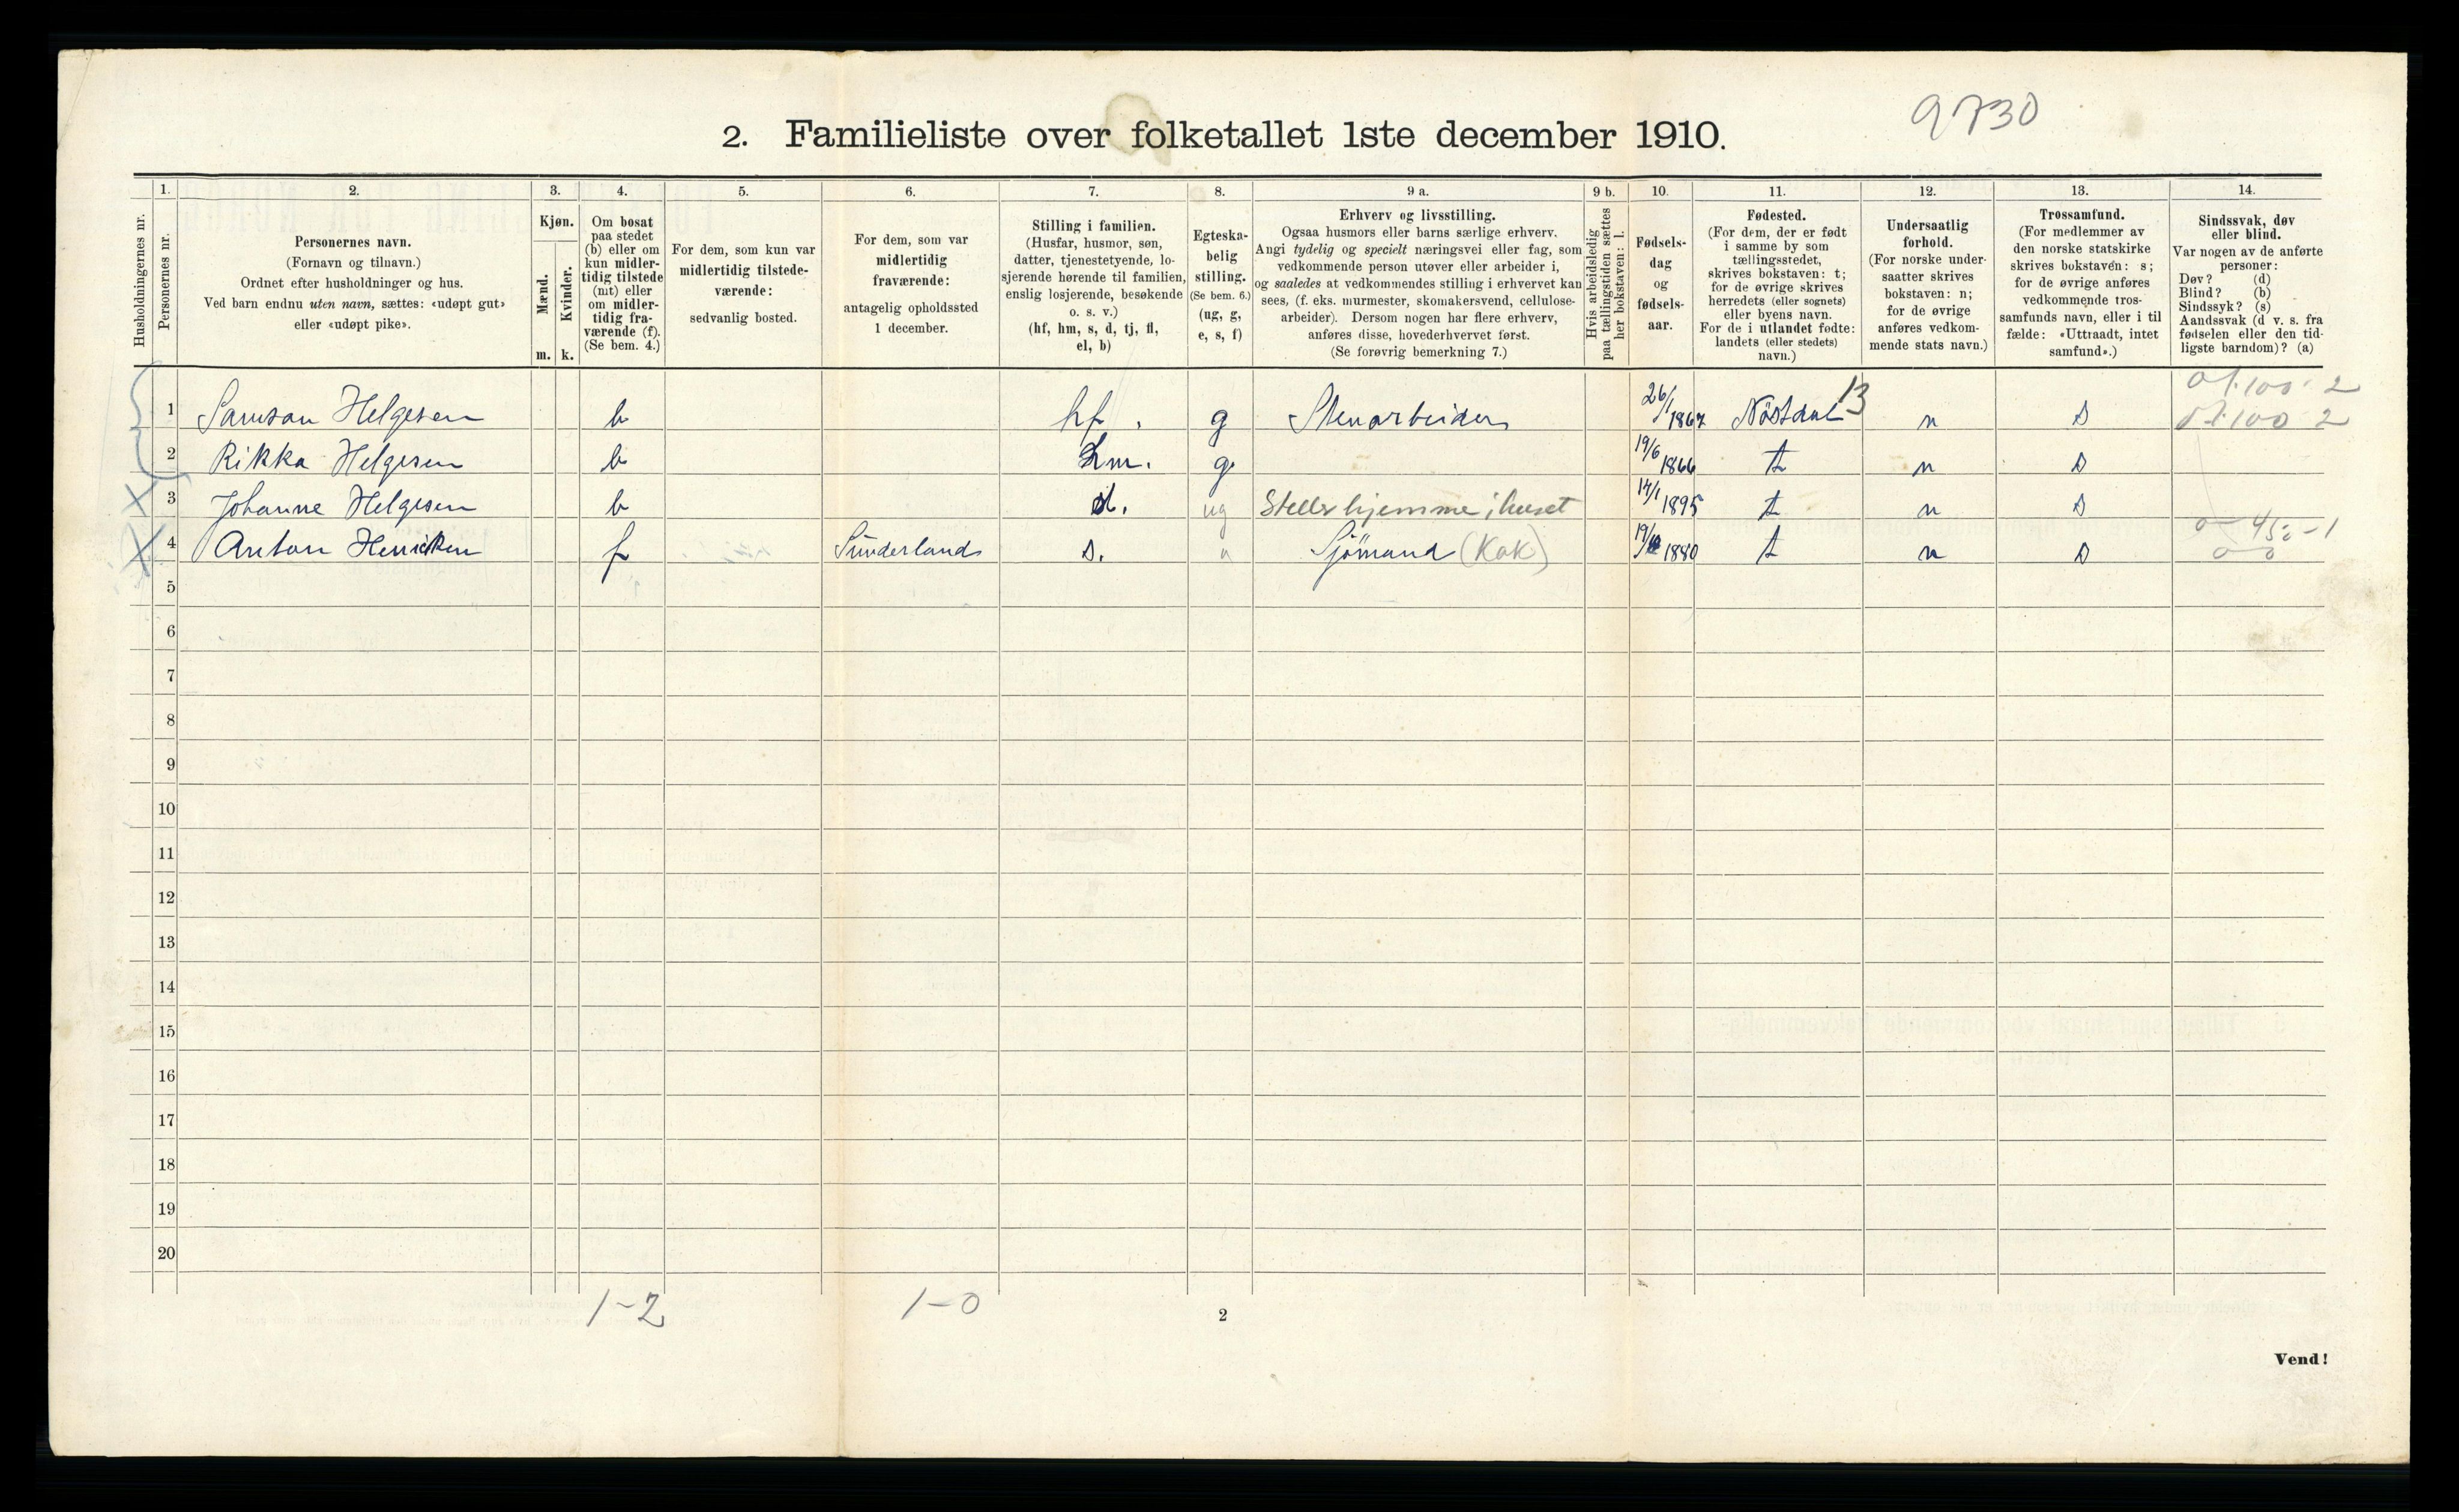 9730
2. Familieliste over folketallet 1ste december 1910.
1. 2. 3. 4. 5. 6. 7. 8. 9 a. 9 b. 10. 11. 12. 13. 14.
Husholdningernes nr.
Personernes nr.
Personernes navn.
(Fornavn og tilnavn.)
Ordnet efter husholdninger og hus.
Ved barn endnu uten navn, sættes: «udøpt gut»
eller «udøpt pike».
Kjøn.
Mænd.
Kvinder.
m. k.
Om bosat
paa stedet
(b) eller om
kun midler-
tidig tilstede
(mt) eller
om midler-
tidig fra-
værende (f).
(Se bem. 4.)
For dem, som kun var
midlertidig tilstede-
værende:
sedvanlig bosted.
For dem, som var
midlertidig
fraværende:
antagelig opholdssted
1 december.
Stilling i familien.
(Husfar, husmor, søn,
datter, tjenestetyende, lo-
sjerende hørende til familien,
enslig losjerende, besøkende
o. s. v.)
(hf, hm, s, d, tj, fl,
el, b)
Egteska-
belig
stilling.
(Se bem. 6.)
(ug, g,
e, s, f)
Erhverv og livsstilling.
Ogsaa husmors eller barns særlige erhverv.
Angi tydelig og specielt næringsvei eller fag, som
vedkommende person utøver eller arbeider i,
og saaledes at vedkommendes stilling i erhvervet kan
sees, (f. eks. murmester, skomakersvend, cellulose-
arbeider). Dersom nogen har flere erhverv,
anføres disse, hovederhvervet først.
(Se forøvrig bemerkning 7.)
Hvis arbeidsledig
paa tællingstiden sættes
her bokstaven: l.
Fødsels-
dag
og
fødsels-
aar.
Fødested.
(For dem, der er født
i samme by som
tællingsstedet,
skrives bokstaven: t;
for de øvrige skrives
herredets (eller sognets)
eller byens navn.
For de i utlandet fødte:
landets (eller stedets)
navn.)
Undersaatlig
forhold.
(For norske under-
saatter skrives
bokstaven: n;
for de øvrige
anføres vedkom-
mende stats navn.)
Trossamfund.
(For medlemmer av
den norske statskirke
skrives bokstaven: s;
for de øvrige anføres
vedkommende tros-
samfunds navn, eller i til-
fælde: «Uttraadt, intet
samfund».)
Sindssvak, døv
eller blind.
Var nogen av de anførte
personer:
Døv? (d)
Blind? (b)
Sindssyk? (s)
Aandssvak (d v. s. fra
fødselen eller den tid-
ligste barndom)? (a)
1 Samson Helgesen b hf. g Stenarbeider 26/1 1867 Nöstdal 13 n s
2 Rikka Helgesen b hm. g 19/6 1866 t n s
3 Johanne Helgesen b d. ug Steller hjemme i huset 14/1 1895 t n s
4 Anton Henriksen f Sunderland s. Sjömand (Kok) 1880 t n s
5
6
7
8
9
10
11
12
13
14
15
16
17
18
19
20
1-2 1-0
2
Vend!